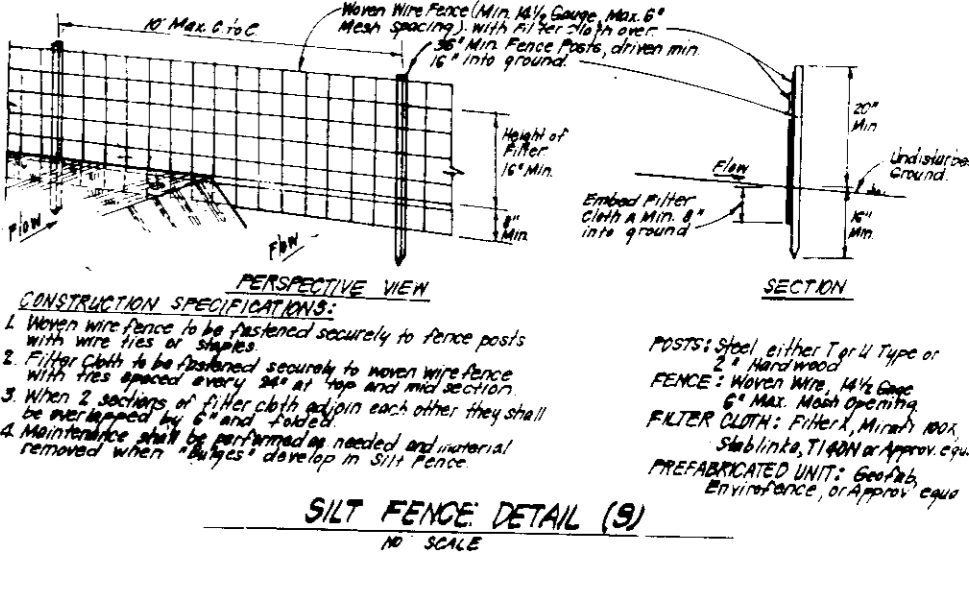 Woven Wire Fence (Min. 14½ Gauge, Max. 6"
Mesh spacing) with Filter cloth over.
10' Max. C. to C.
36" Min. Fence Posts, driven min.
16" into ground.
Height of
Filter
16" Min.
8"
Min.
Flow
Flow
PERSPECTIVE VIEW
20"
Min
Undisturbed
Ground.
Flow
Embed Filter
Cloth A Min. 8"
into ground
16"
Min.
SECTION
CONSTRUCTION SPECIFICATIONS:
1. Woven wire fence to be fastened securely to fence posts
with wire ties or staples.
2. Filter Cloth to be fastened securely to woven wire fence
with ties spaced every 24" at top and mid section.
3. When 2 sections of filter cloth adjoin each other they shall
be overlapped by 6" and folded.
4. Maintenance shall be performed as needed and material
removed when "Bulges" develop in Silt Fence.
POSTS: Steel either T or U Type or
2" Hardwood
FENCE: Woven Wire, 14½ Gage
6" Max. Mesh Opening
FILTER CLOTH: Filter X, Mirafi 100X,
Stablinka, T140N or Approv. equ
PREFABRICATED UNIT: Geofab,
Envirofence, or Approv equa
SILT FENCE DETAIL (S)
NO SCALE